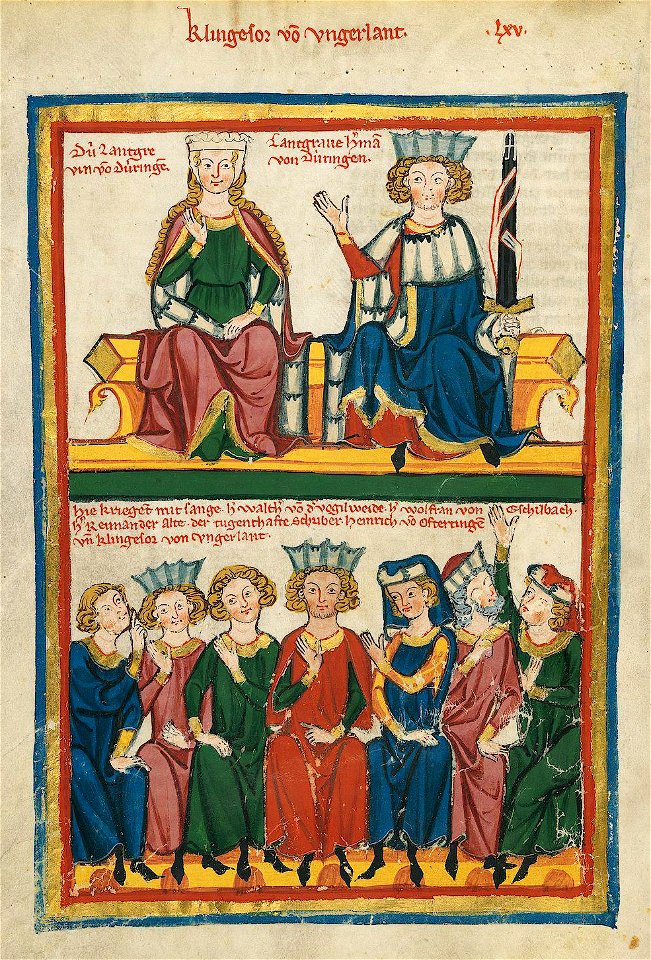 Klingesor võ vngerlant.
.lxv.
Dú Lantgre
vin võ Dúringẽ.
Lantgraue h̾mã
von Dúringen.
Hie krieget mit sange. h̾ walth̾ von d̾ vogilweide. h̾ wolfran von Eschilbach.
h̾ Reimander Alte. der tugenthafte Schriber. Heinrich võ Ofterringẽ
vñ Klingesor von vngerlant.